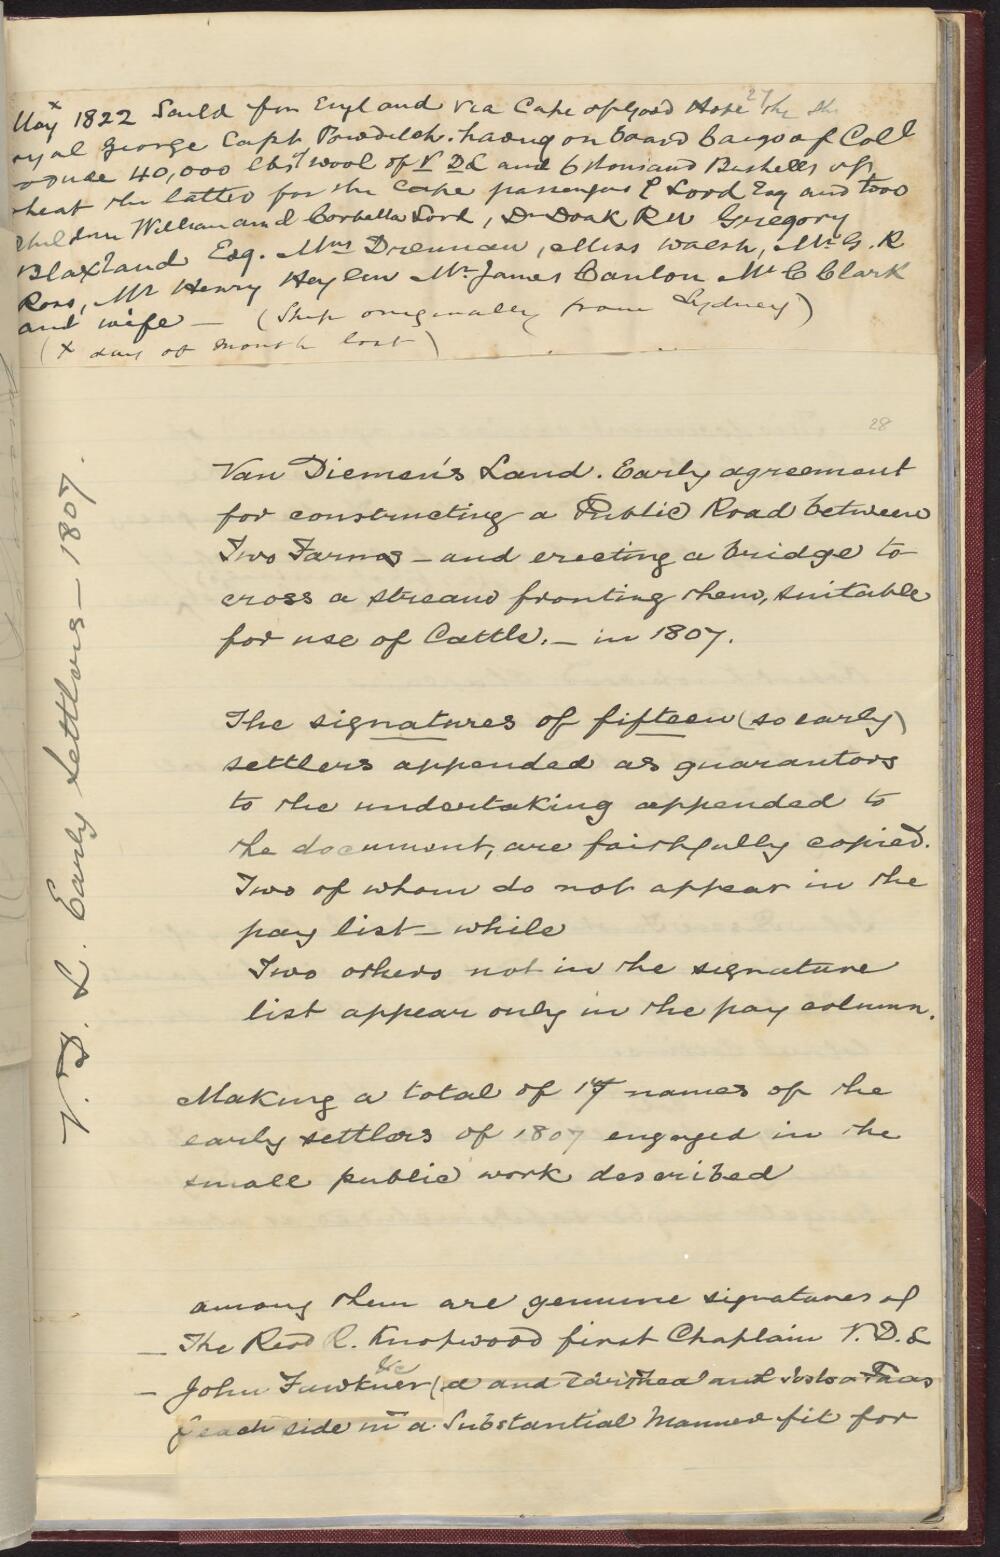 May x 1822 Saild for England via Cape of Good Hope the Sh
oyal George Capt Powditch. having on board Cargo of Coll
oduce 40,000 lbs of wool of V DL and 6 thousand Bushells of
heat the latter for the Cape passengers E Lord Esq and two
children William and Corbetta Lord, Dr Doak RN Gregory
Blaxland Esq. Mrs Drennan, Miss Walsh, Mr G. R
Ross, Mr Henry Heylin Mr James Canlon Mr C Clark
and wife — (Ship originally from Sydney)
(x day of month lost)
27
28
V. D. L. Early Settlers — 1807.
Van Diemen's Land. Early agreement
for constructing a Public Road between
Two Farms — and erecting a bridge to
cross a stream fronting them, suitable
for use of Cattle. — in 1807.
The signatures of fifteen (so early)
settlers appended as guarantors
to the undertaking appended to
the document, are faithfully copied.
Two of whom do not appear in the
pay list — while
Two others not in the signature
list appear only in the pay column.
Making a total of 17 names of the
early settlers of 1807 engaged in the
small public work described
among them are genuine signatures of
— The Revd R. Knopwood first Chaplain V. D. L
— John Fawkner &c and and
each side in a Substantial Manner fit for